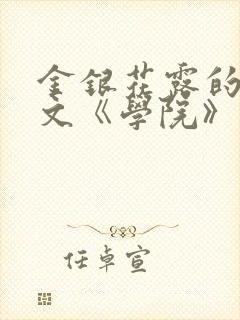 金银花露的
文《學院》
任卓宣